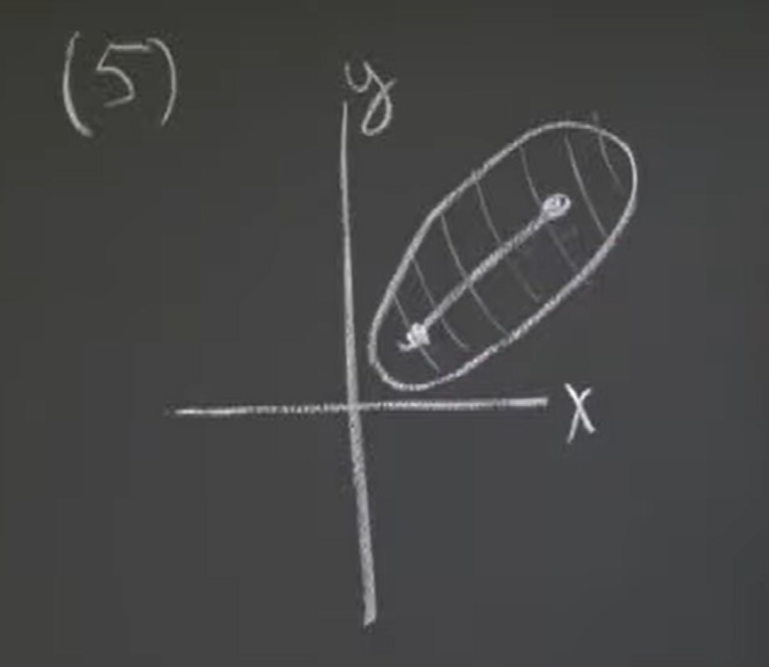 (5)
y
x